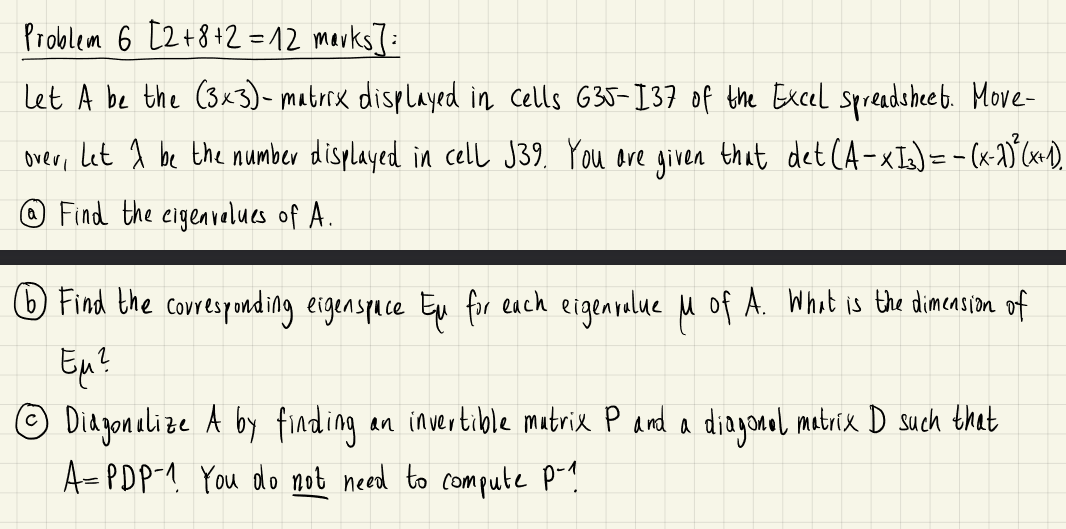 Problem 6 [2+8+2=12 marks]:
Let A be the (3x3)-matrix displayed in cells G35-I37 of the Excel spreadsheet. More-
over, let λ be the number displayed in cell J39. You are given that det(A-xI₃)=-(x-λ)²(x+1).
ⓐ Find the eigenvalues of A.
ⓑ Find the corresponding eigenspace Eμ for each eigenvalue μ of A. What is the dimension of
Eμ?
ⓒ Diagonalize A by finding an invertible matrix P and a diagonal matrix D such that
A=PDP⁻¹! You do not need to compute P⁻¹!